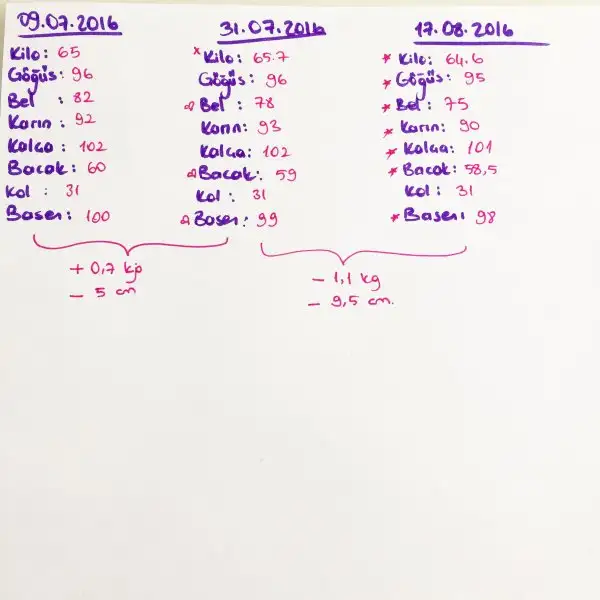 09.07.2016
Kilo: 65
Göğüs: 96
Bel : 82
Karın: 92
Kalça: 102
Bacak: 60
Kol : 31
Basen: 100
+ 0,7 kg
- 5 cm
31.07.2016
* Kilo: 65.7
Göğüs: 96
Bel: 78
Karın: 93
Kalça: 102
Bacak: 59
Kol: 31
Basen: 99
17.08.2016
* Kilo: 64.6
* Göğüs: 95
* Bel: 75
* Karın: 90
* Kalça: 101
* Bacak: 58,5
Kol: 31
* Basen: 98
- 1,1 kg
- 9,5 cm.